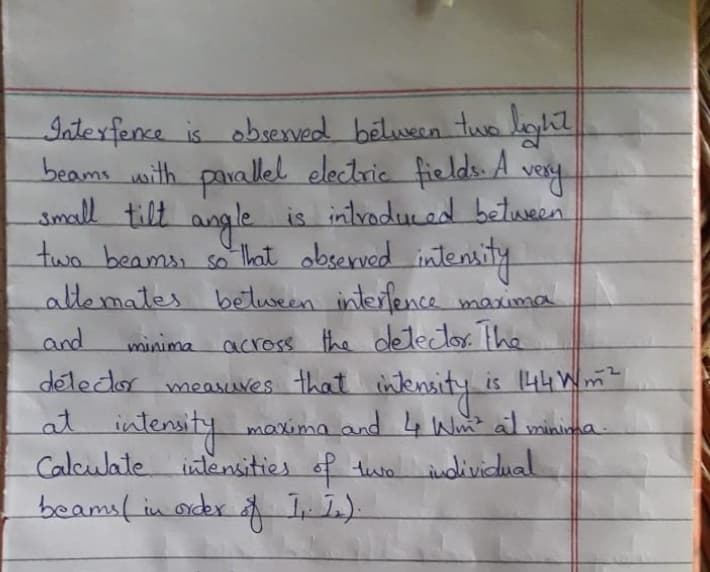 Interfence is observed between two light
beams with parallel electric fields. A very
small tilt angle is introduced between
two beams, so that observed intensity
alternates between interfence maxima
and minima across the detector. The
detector measures that intensity is 144 Wm⁻²
at intensity maxima and 4 Wm⁻² at minima.
Calculate intensities of two individual
beams( in order of I₁, I₂).